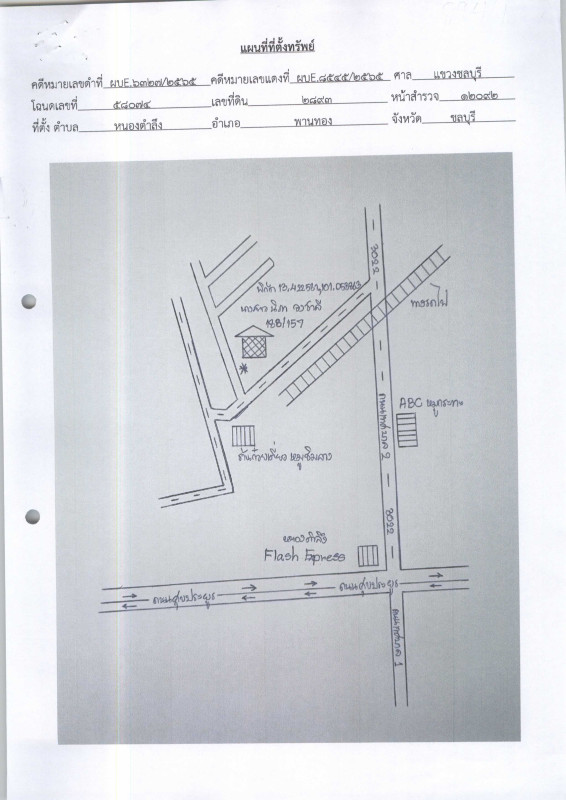 แผนที่ที่ตั้งทรัพย์
คดีหมายเลขดำที่ ผบE.๖๓๒๗/๒๕๖๕ คดีหมายเลขแดงที่ ผบE.๘๕๔๕/๒๕๖๕ ศาล แขวงชลบุรี
โฉนดเลขที่ ๕๘๐๗๔ เลขที่ดิน ๒๘๙๓ หน้าสำรวจ ๑๒๐๙๒
ที่ตั้ง ตำบล หนองตำลึง อำเภอ พานทอง จังหวัด ชลบุรี
3022
พิกัด
นางสาว นิภา
128/157
ทางรถไฟ
ABC หมูกระทะ
ถนนเทศบาล 2
ร้านก๋วยเตี๋ยว
3022
หนองตำลึง
Flash Express
ถนนศุขประยูร
ถนนศุขประยูร
ถนนเทศบาล 1